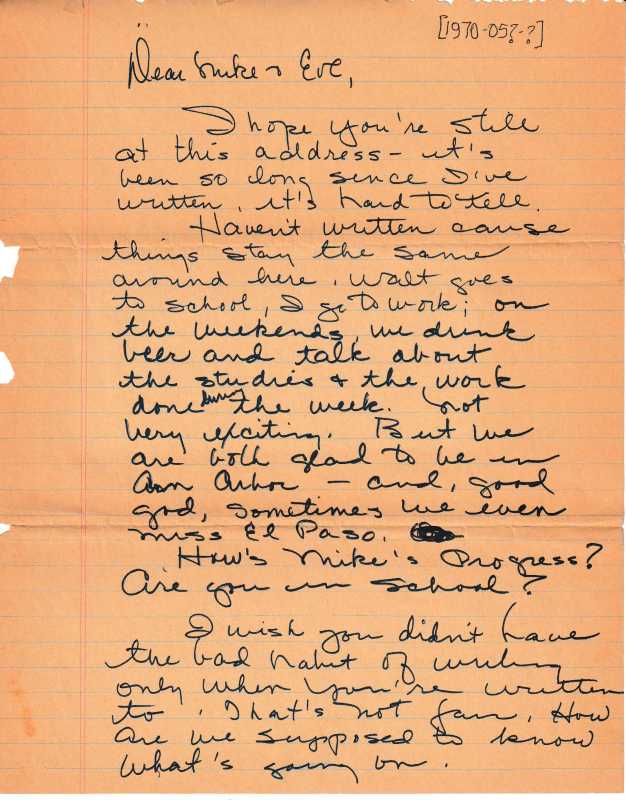 [1970-05?-?]
Dear Mike & Eve,
I hope you're still
at this address - it's
been so long since I've
written, it's hard to tell.
Haven't written cause
things stay the same
around here. Walt goes
to school, I go to work; on
the weekends, we drink
beer and talk about
the studies & the work
done during the week. Not
very exciting. But we
are both glad to be in
Ann Arbor - and, good
god, sometimes we even
miss El Paso.
How's Mike's Progress?
Are you in school?
I wish you didn't have
the bad habit of writing
only when you're written
to. That's not fair. How
are we supposed to know
what's going on.